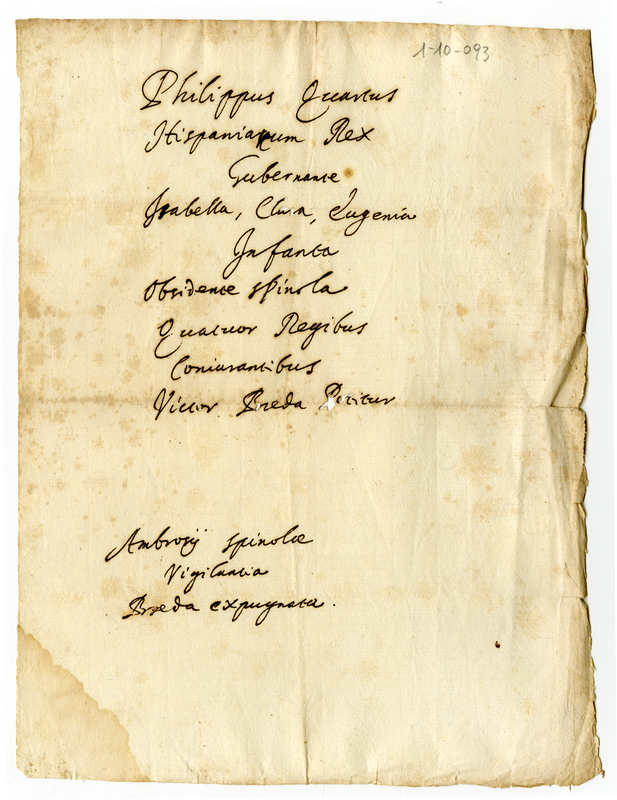 1-10-093
Philippus Quartus
Hispaniarum Rex
Gubernante
Isabella, Clara, Eugenia
Infanta
Obsidente spinola
Quatuor Regibus
Coniurantibus
Victor Breda Potitur
Ambrosij spinolæ
Vigilantia
Breda expugnata.